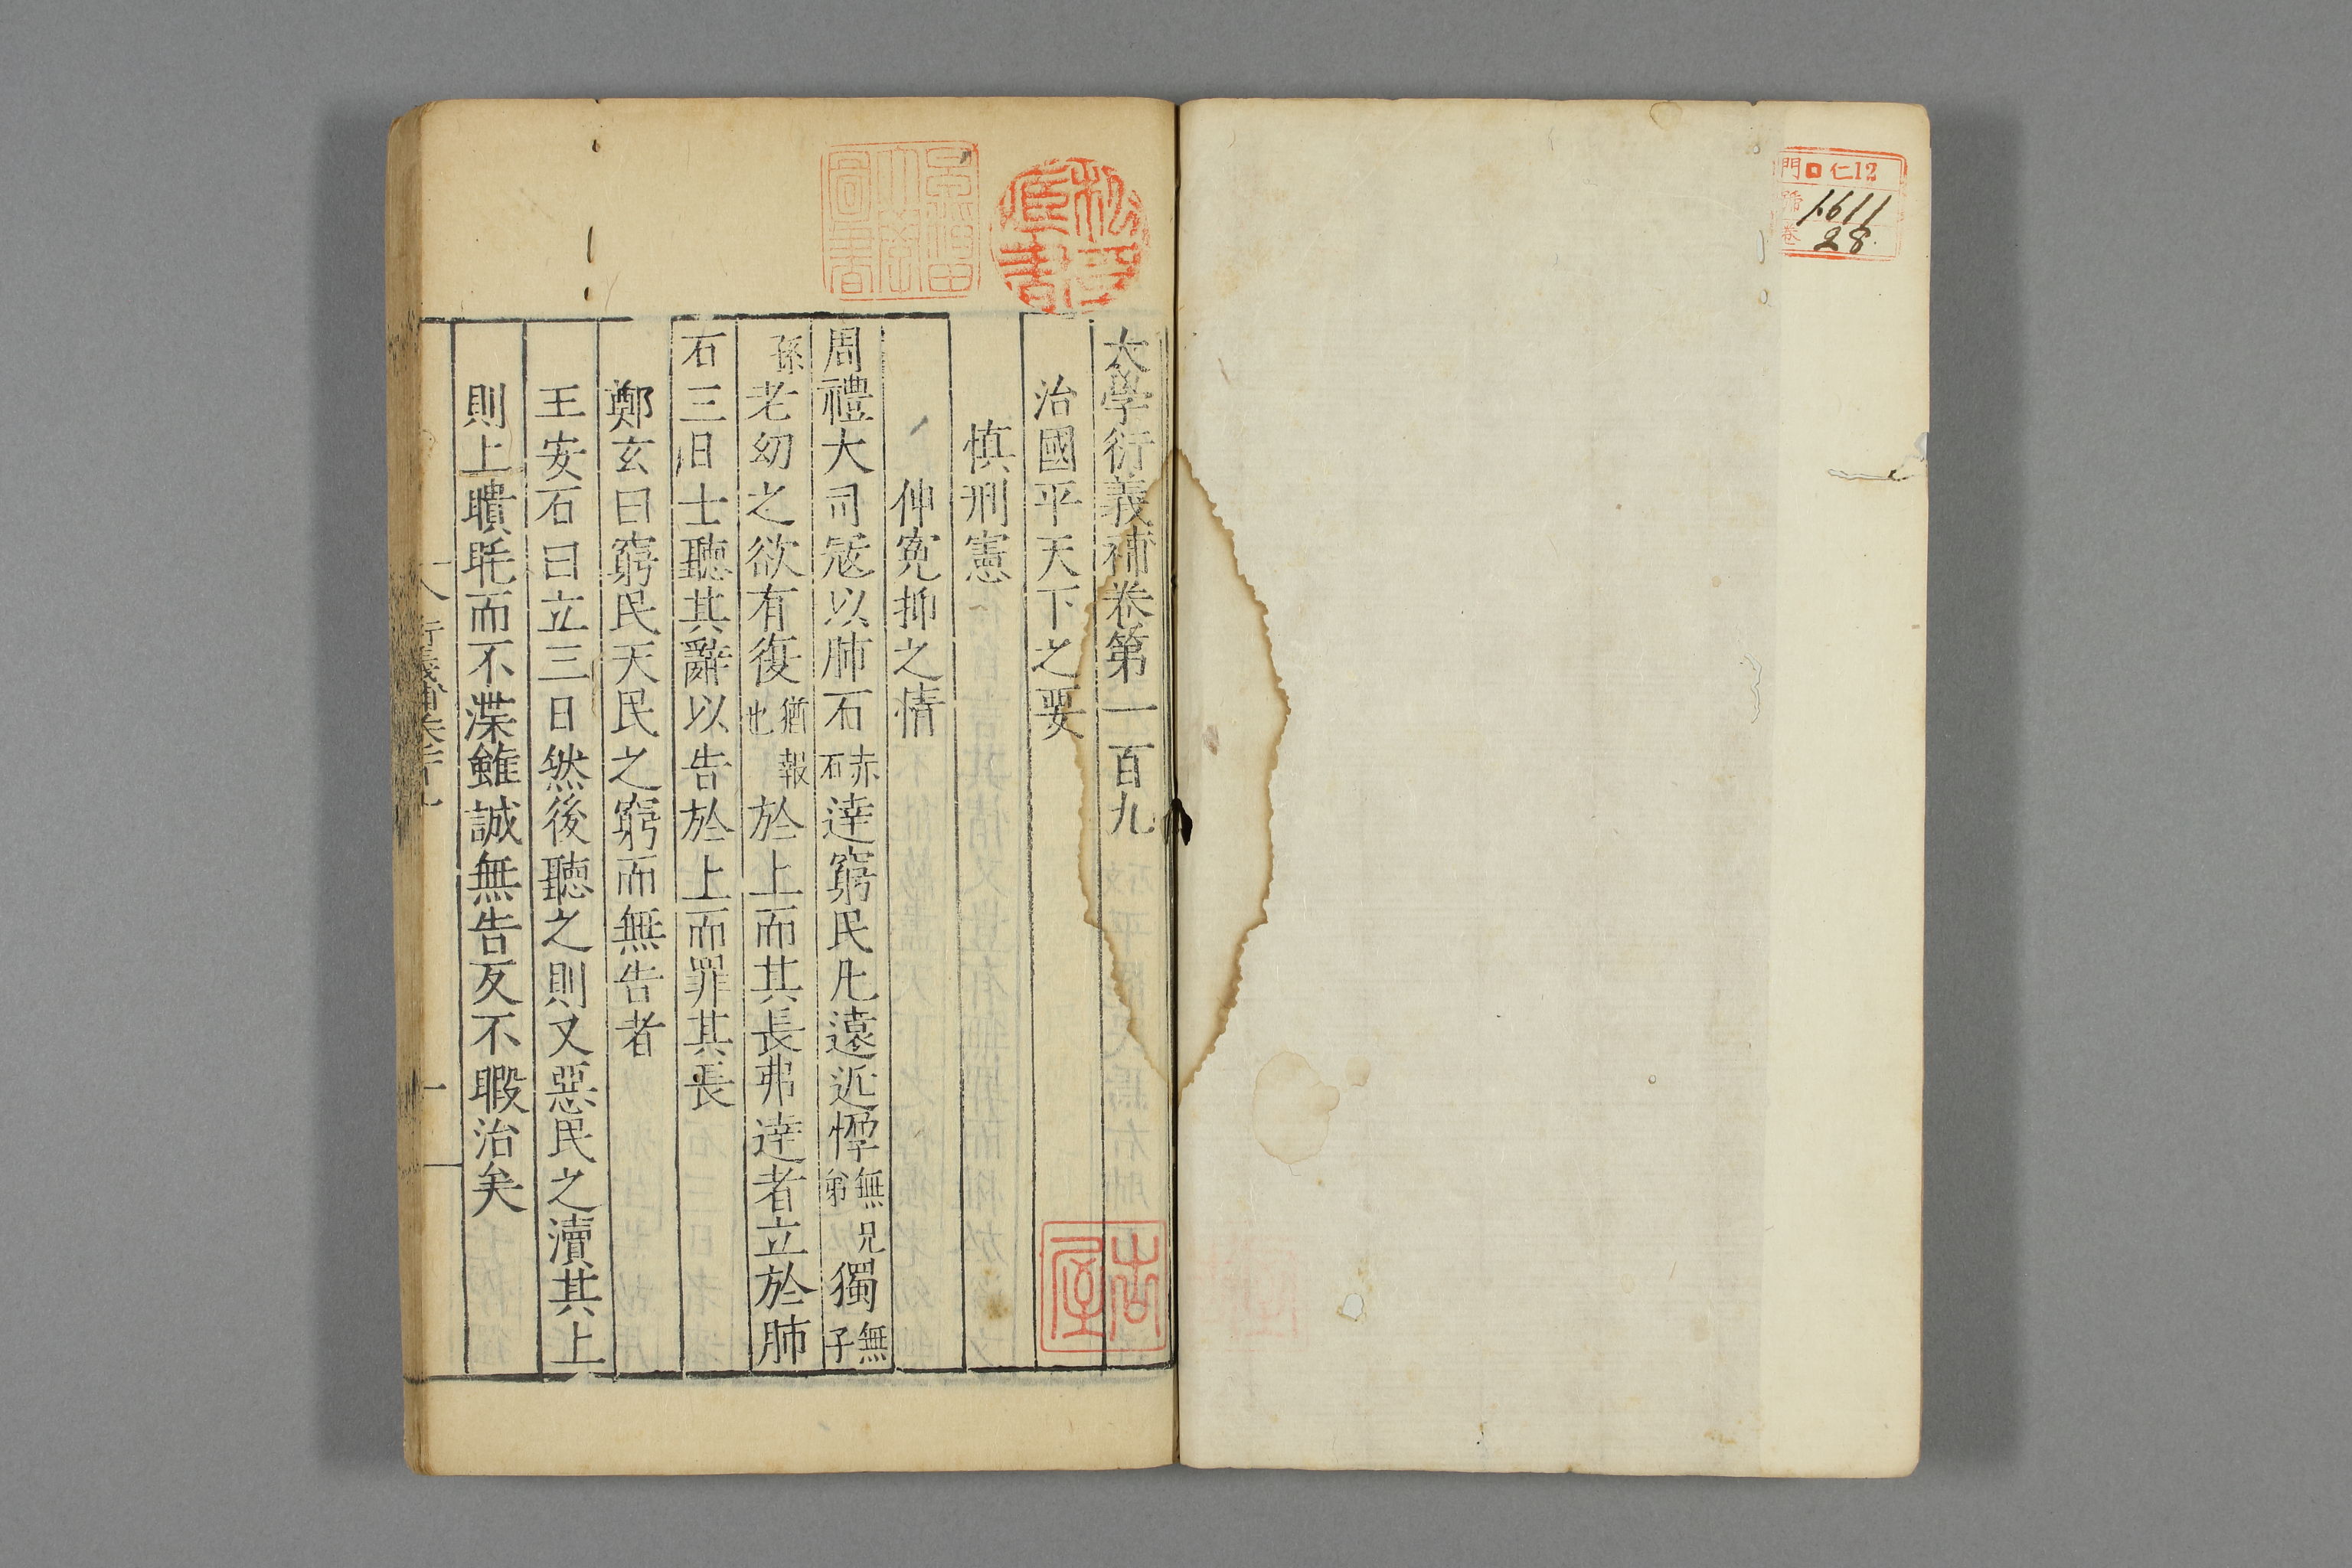 門口仁12
號 1611
卷 28
大學衍義補卷第一百九
治國平天下之要
慎刑憲
伸寃抑之情
周禮大司寇以肺石赤石達窮民凡遠近惸無兄弟獨無子
孫老幼之欲有復猶報也於上而其長弗達者立於肺
石三日士聽其辭以告於上而罪其長
鄭玄曰窮民天民之窮而無告者
王安石曰立三日然後聽之則又惡民之瀆其上
則上聵眊而不渫雖誠無告反不暇治矣